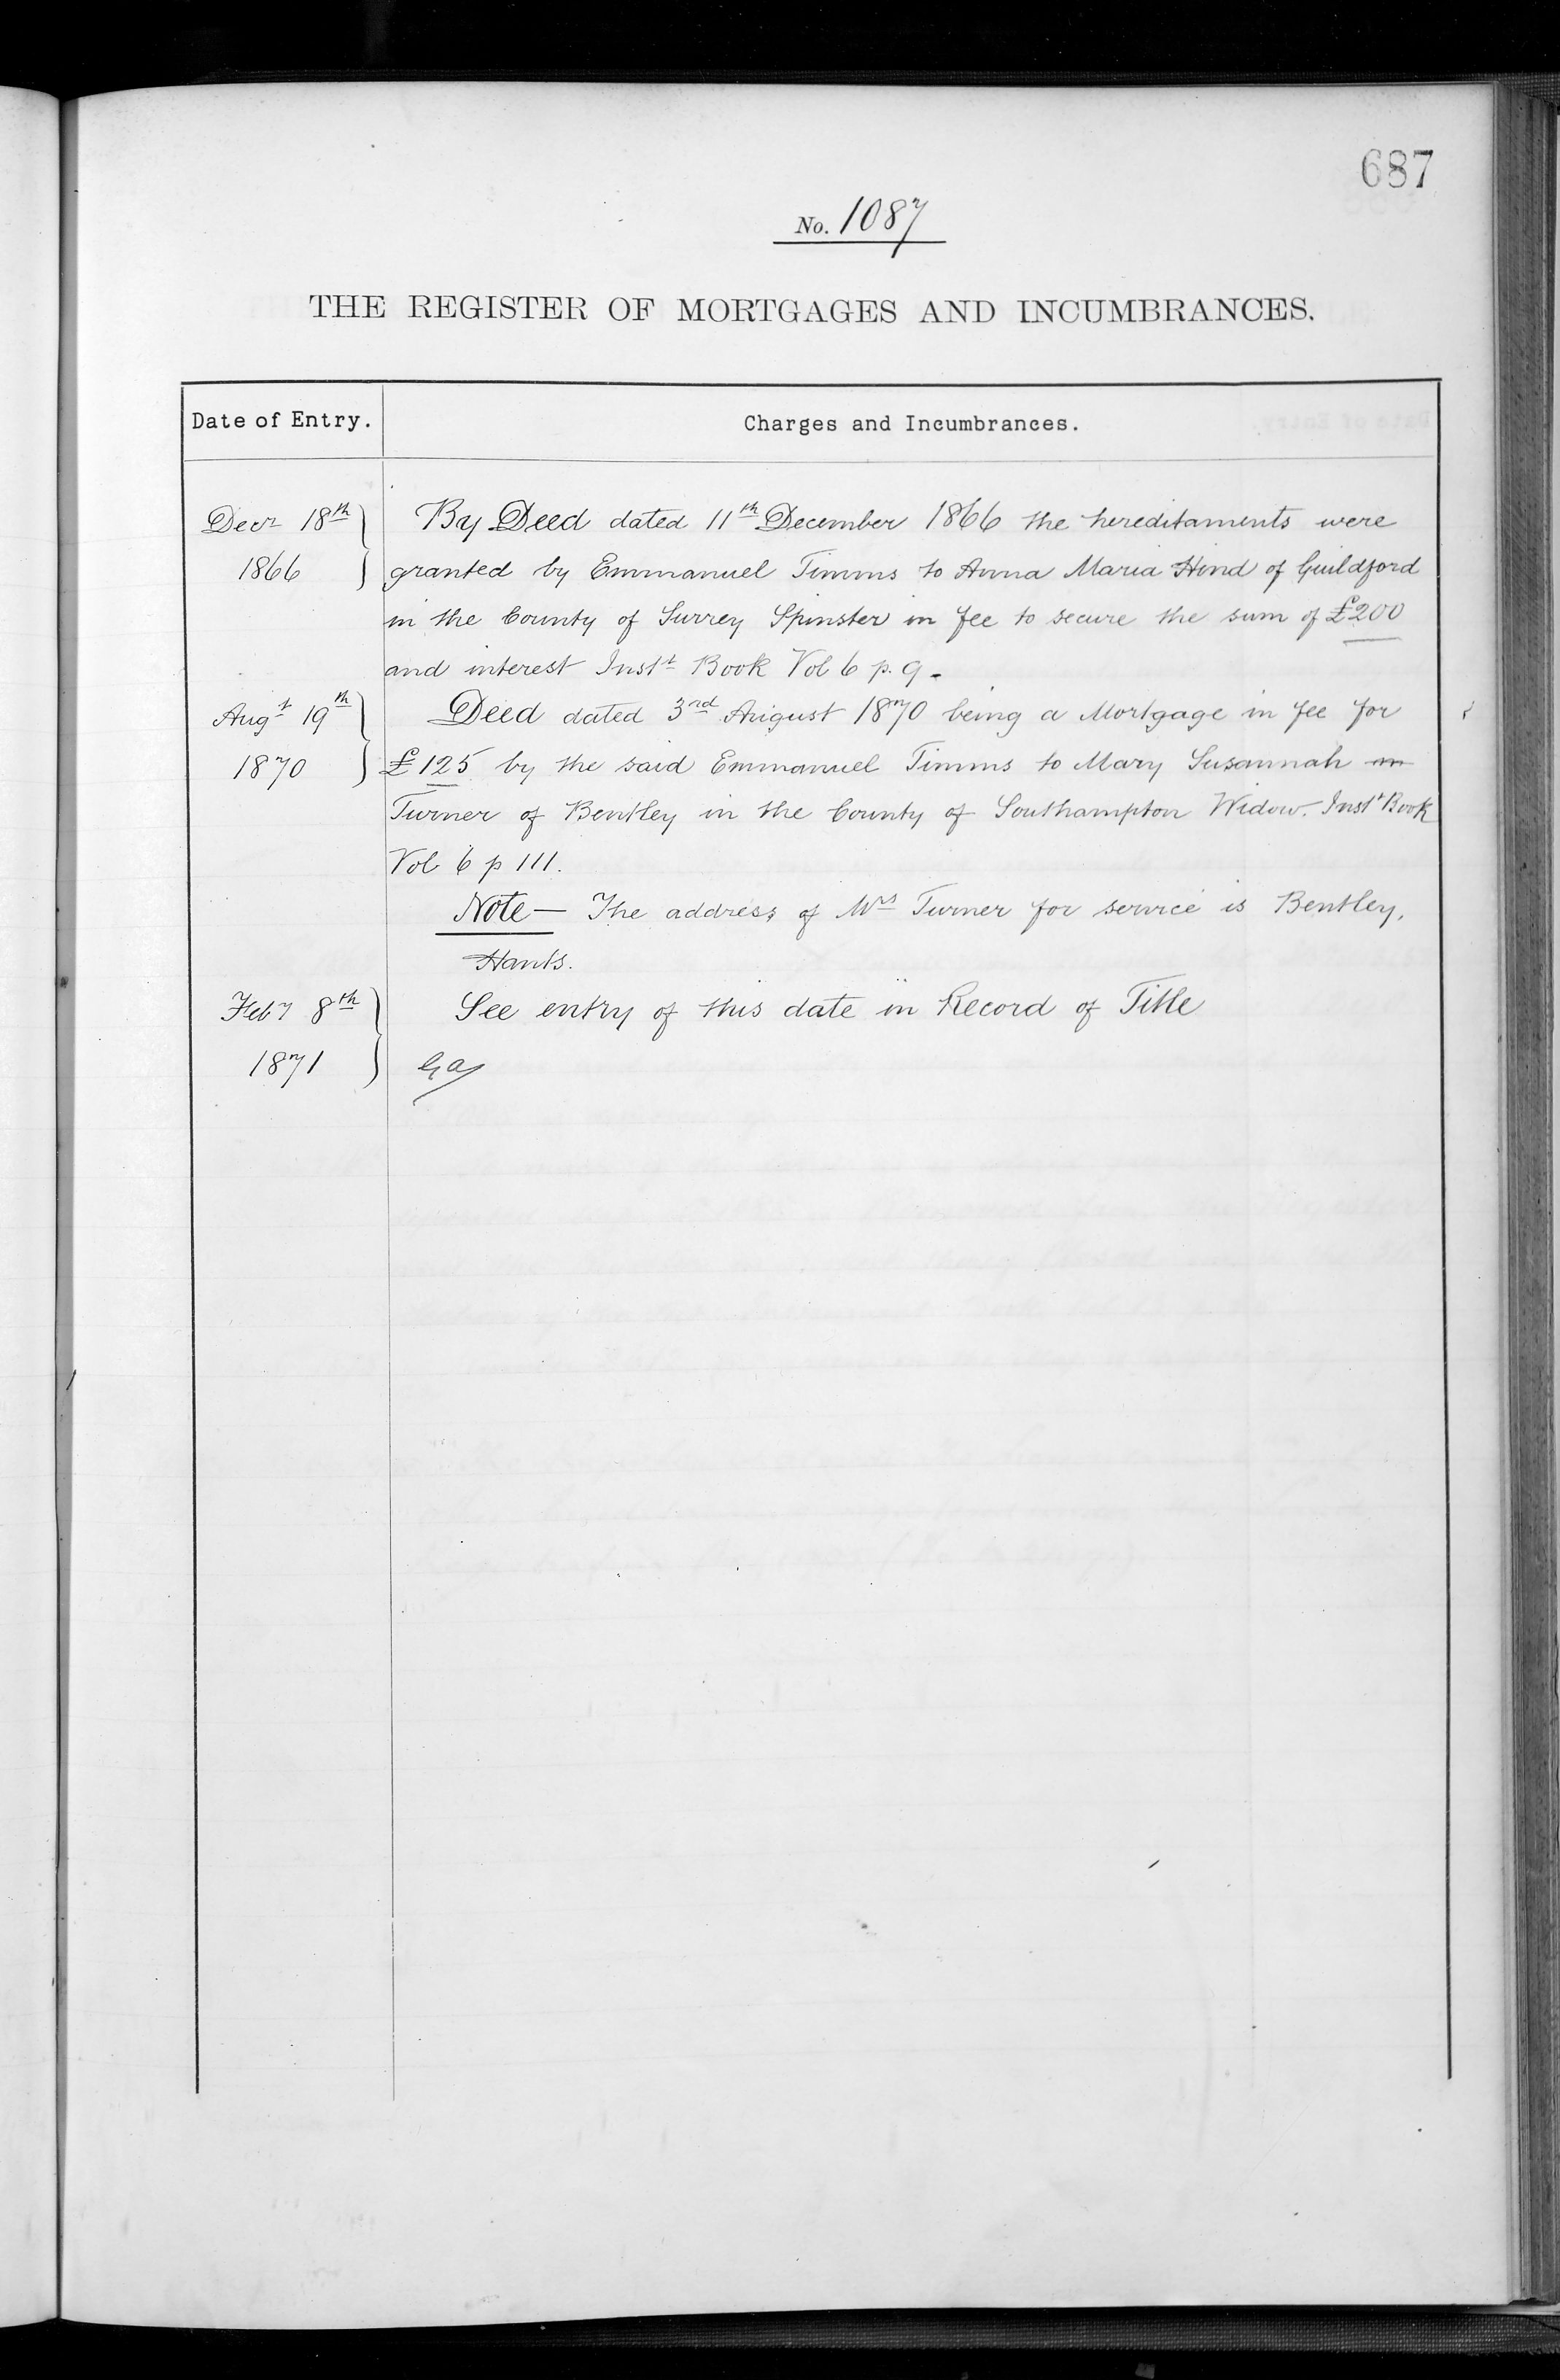 687
No. 1087
THE REGISTER OF MORTGAGES AND INCUMBRANCES.
Date of Entry. Charges and Incumbrances.
Decr 18th By Deed dated 11th December 1866 the hereditaments were
1866 granted by Emmanuel Timms to Anna Maria Hind of Guildford
in the County of Surrey Spinster in fee to secure the sum of £200
and interest Instt Book Vol 6 p. 9.
Augt 19th Deed dated 3rd August 1870 being a Mortgage in fee for
1870 £125 by the said Emmanuel Timms to Mary Susannah
Turner of Bentley in the County of Southampton Widow. Instt Book
Vol 6 p 111.
Note — The address of Mrs Turner for service is Bentley,
Hants.
Feby 8th See entry of this date in Record of Title
1871